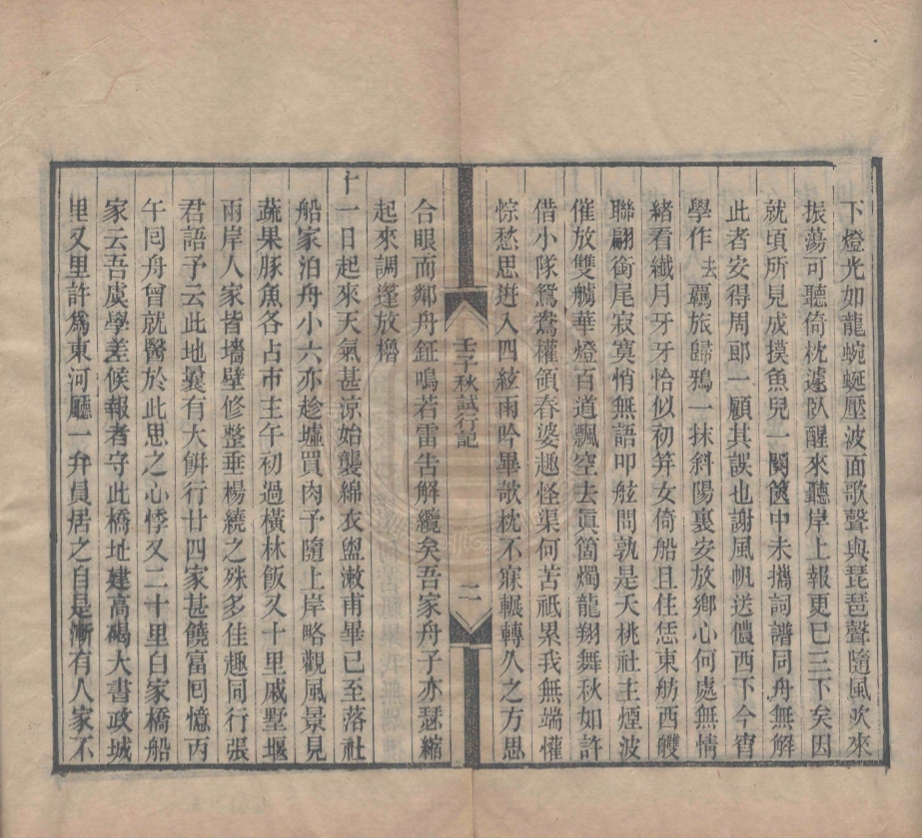 下燈光如龍蜿蜒壓波面歌聲與琵琶聲隨風吹來
振蕩可聽倚枕遽臥醒來聽岸上報更巳三下矣因
就頃所見成摸魚兒一闋篋中未攜詞譜同舟無解
此者安得周郎一顧其誤也謝風帆送儂西下今宵
學作去羈旅歸鴉一抹斜陽裏安放鄉心何處無情
緒看纖月牙牙恰似初筓女倚船且住恁東舫西艭
聯翩銜尾寂寞悄無語叩舷問孰是天桃社主煙波
催放雙艣華燈百道飄空去眞箇燭龍翔舞秋如許
借小隊鴛鴦權領春婆趣怪渠何苦祇累我無端懽
悰愁思迸入四絃雨吟畢欹枕不寐輾轉久之方思
壬子秋試行記
二
合眼而鄰舟鉦鳴若雷吿解纜矣吾家舟子亦瑟縮
起來調篷放櫓
十一日起來天氣甚涼始襲綿衣盥漱甫畢已至落社
船家泊舟小六亦趁墟買肉予隨上岸略觀風景見
蔬果豚魚各占市主午初過橫林飯又十里戚墅堰
兩岸人家皆墻壁修整垂楊繞之殊多佳趣同行張
君語予云此地曩有大餠行廿四家甚饒富回憶丙
午同舟曾就醫於此思之心悸又二十里白家橋船
家云吾虞學差候報者守此橋址建高碣大書政城
里又里許爲東河廳一弁員居之自是漸有人家不